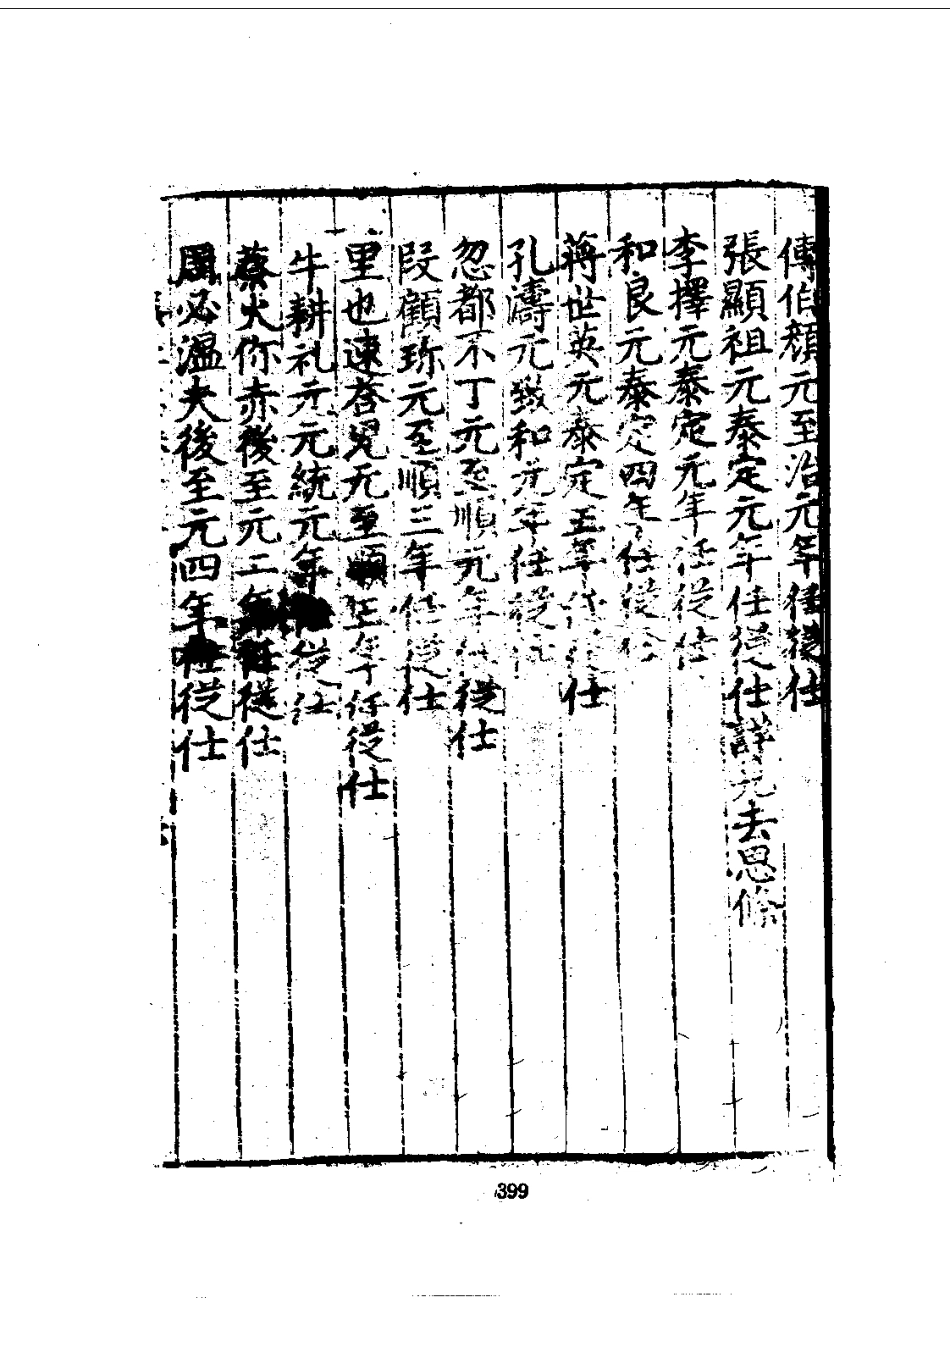 傅伯顔元至治元年任從仕
張顯祖元泰定元年任從仕詳元去思條
李擇元泰定元年任從仕
和良元泰定四年任從仕
蔣世英元泰定五年任從仕
孔濤元致和元年任從仕
忽都不丁元至順元年任從仕
段顧珎元至順三年任從仕
里也速荅児元至順三年任從仕
牛耕礼元元統元年任從仕
蔡火你赤後至元二年任從仕
周必溫夫後至元四年任從仕
399